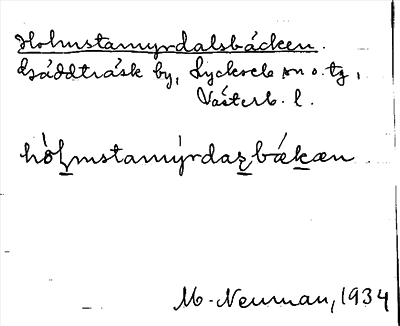 Holmstamyrdalsbäcken.
Gäddträsk by, Lycksele sn o. tg,
Västerb. l.
hòl̲mstamýrdaz̲bækæn
M. Neuman, 1934